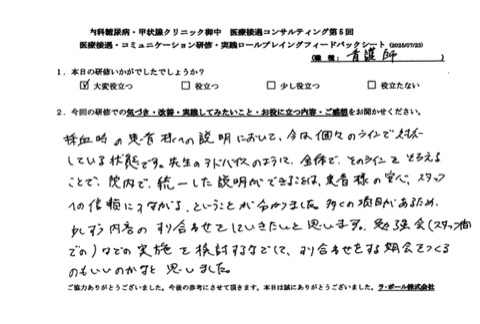 内科糖尿病・甲状腺クリニック御中　医療接遇コンサルティング第５回
医療接遇・コミュニケーション研修・実践ロールプレイングフィードバックシート（2025/07/23）
（職　種：看護師）
１．本日の研修いかがでしたでしょうか？
☑ 大変役立つ　□ 役立つ　□ 少し役立つ　□ 役立たない
２．今回の研修での気づき・改善・実践してみたいこと・お役に立つ内容・ご感想をお聞かせください。
採血時の患者様への説明において、今は個々のラインで対応
している状態です。先生のアドバイスのように、全体で、そのラインをそろえる
ことで、院内で、統一した説明ができることは、患者様の安心、スタッフ
への信頼につながる、ということが分かりました。多くの項目があるため、
少しずつ内容のすり合わせをしていきたいと思います。勉強会（スタッフ間
での）などの実施を検討するなどして、すり合わせをする機会をつくる
のもいいのかなと思いました。
ご協力ありがとうございました。今後の参考にさせて頂きます。本日は誠にありがとうございました。ラ・ポール株式会社